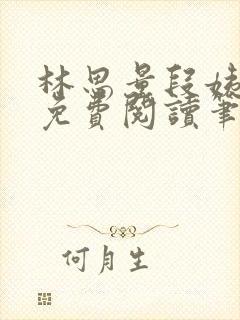 林思曼段姨
免費閱讀筆
何月生